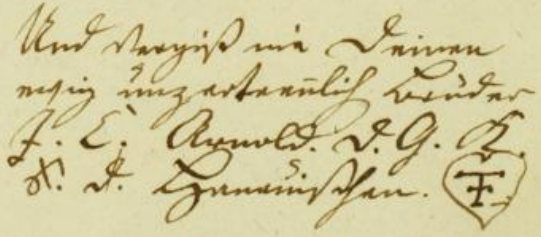 Und vergiß nie Deinen
ewig unzertrennlich Bruder
J. C. Arnold. D. G. K.
d. Hanauischen.